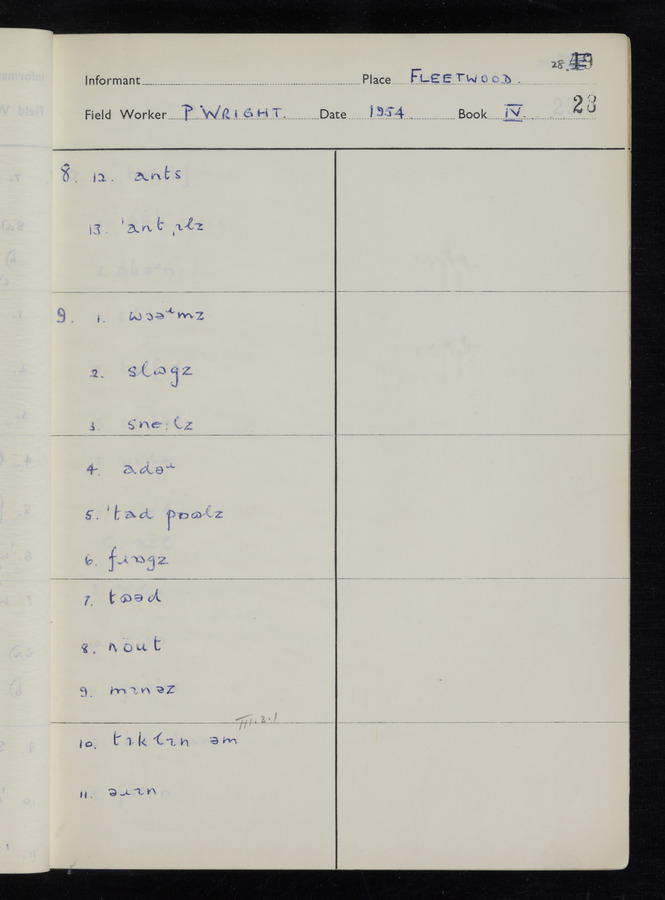 28. 49
Informant Place FLEETWOOD.
Field Worker P. WRIGHT. Date 1954 Book IV. 28
8. 12. ants
13. ˈantˌɪlz
9. 1. wɔəʴmz
2. slɷgz
3. sneːlz
4. adəʴ
5. ˈtad pɒɷlz
6. fɹɒgz
7. tɷəd
8. nöut
9. mɪnəz
III.3.1
10. tɪklɪn əm
11. əɹɪn